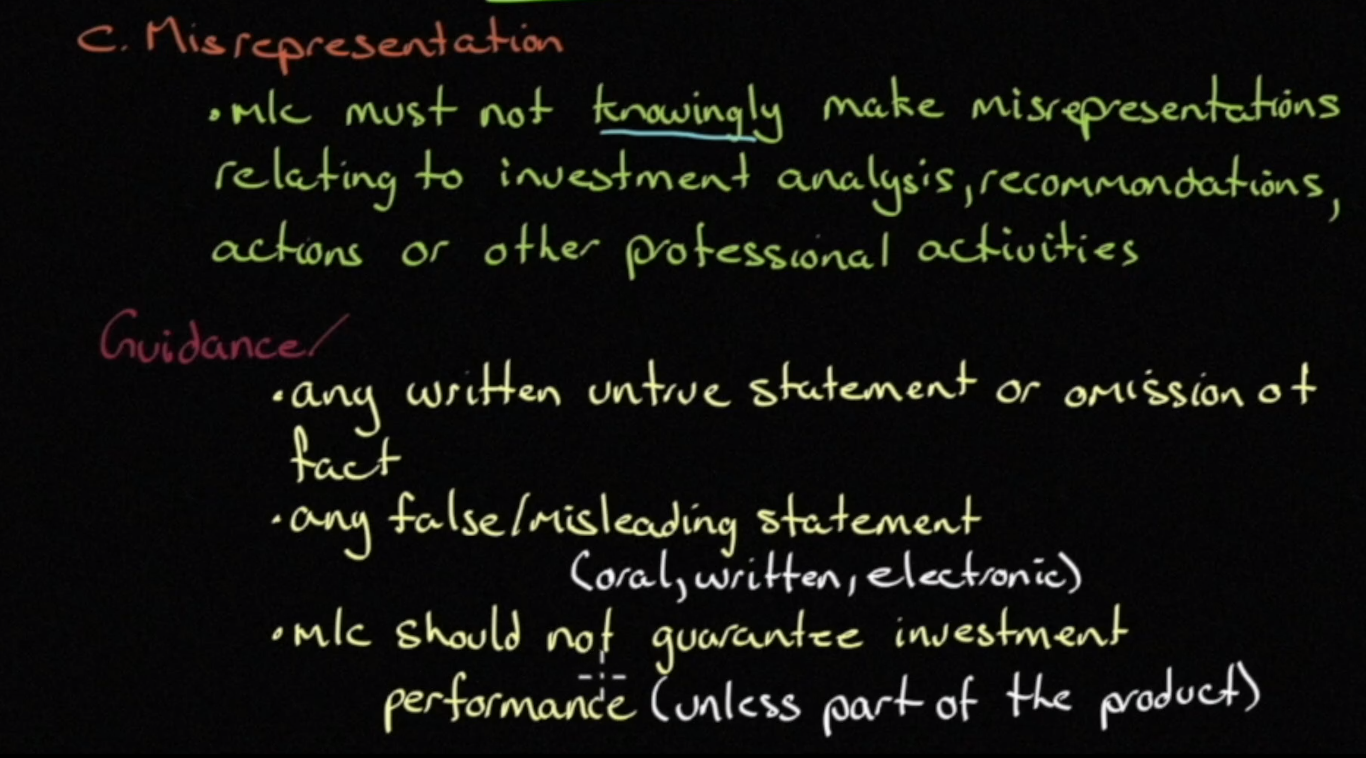 C. Misrepresentation
• M/C must not knowingly make misrepresentations
relating to investment analysis, recommondations,
actions or other professional activities
Guidance/
• any written untrue statement or omission of
fact
• any false/misleading statement
(oral, written, electronic)
• M/C should not guarantee investment
performance (unless part of the product)